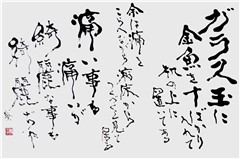 ガラス玉に
金魚を十ばかり入れて
机の上に
置いてある
余は痛を
こらへながら病床から
つくづくと見て居る
痛い事も
痛いが
綺麗な事も
綺麗ぢや